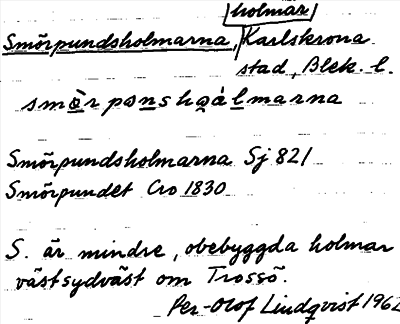 holmar
Smörpundsholmarna, Karlskrona
stad, Blek. l.
smɶ̀rpɷnshɷálmarna
Smörpundsholmarna Sj 821
Smörpundet Cro 1830
S. är mindre, obebyggda holmar
västsydväst om Trossö.
Per-Olof Lindqvist 1962